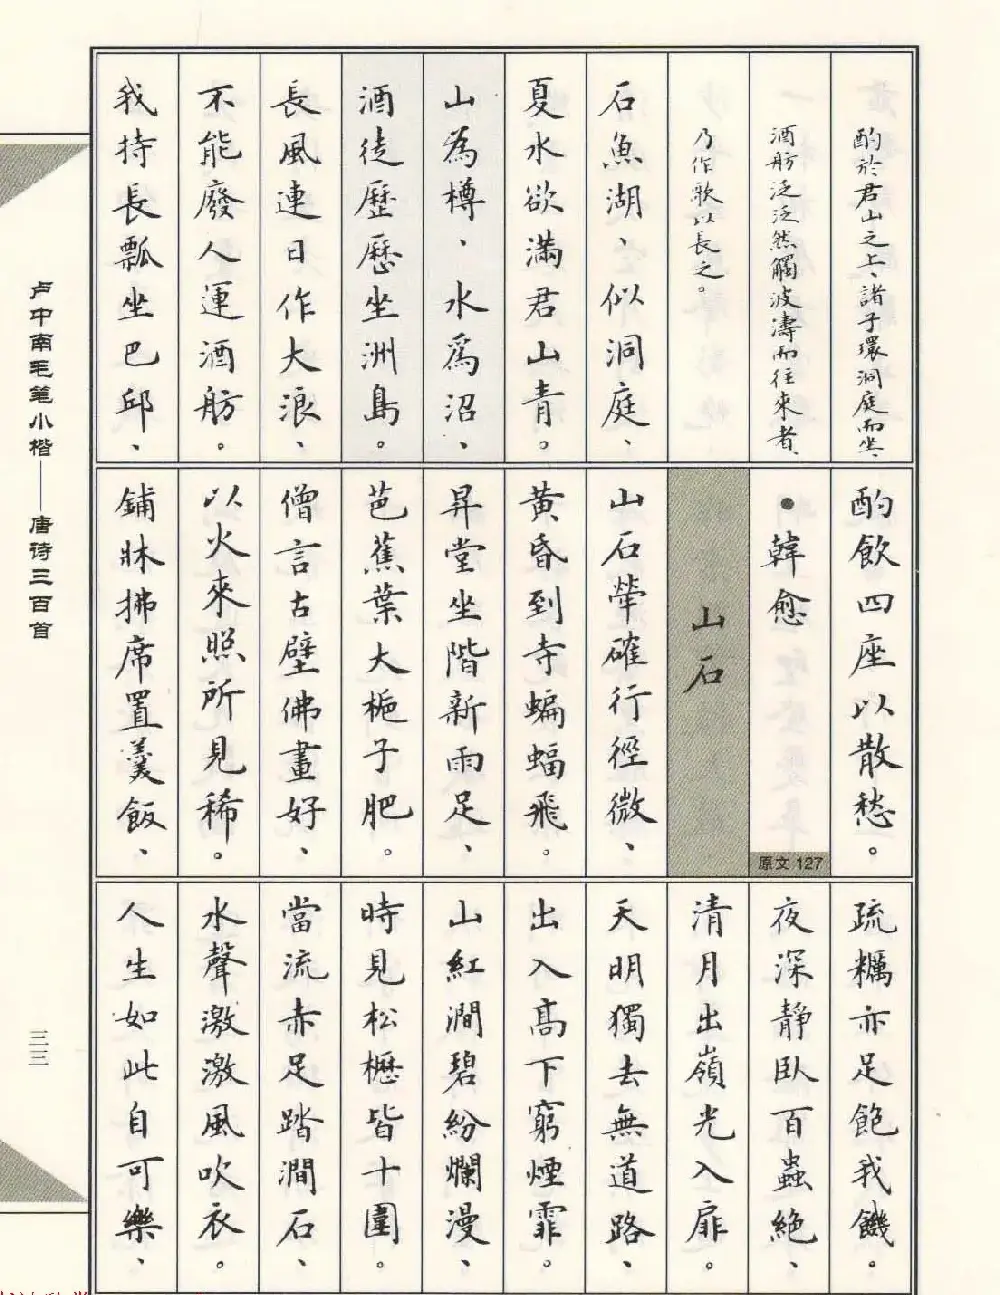 酌於君山之上、諸子環洞庭而坐、
酒舫泛泛然觸波濤而往來者、
乃作歌以長之。
石魚湖、似洞庭、
夏水欲滿君山青。
山為樽、水為沼、
酒徒歷歷坐洲島。
長風連日作大浪、
不能廢人運酒舫。
我持長瓢坐巴邱、
酌飲四座以散愁。
●韓愈
原文 127
山石
山石犖確行徑微、
黃昏到寺蝙蝠飛。
昇堂坐階新雨足、
芭蕉葉大梔子肥。
僧言古壁佛畫好、
以火來照所見稀。
鋪牀拂席置羹飯、
疏糲亦足飽我饑。
夜深靜臥百蟲絕、
清月出嶺光入扉。
天明獨去無道路、
出入高下窮煙霏。
山紅澗碧紛爛漫、
時見松櫪皆十圍。
當流赤足踏澗石、
水聲激激風吹衣。
人生如此自可樂、
卢中南毛笔小楷——唐诗三百首
三三